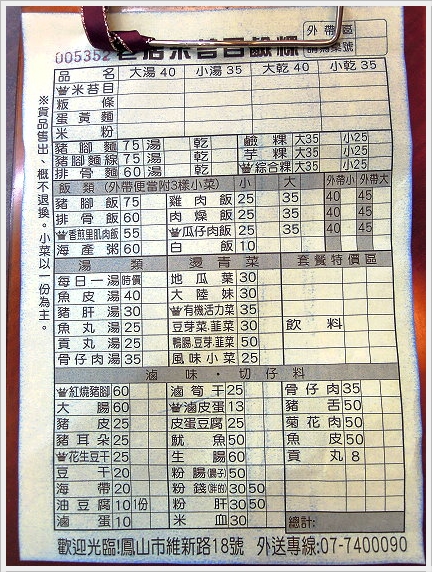 外帶區
005352 老店米苔目鹼粿 請詢桌號
品名 大湯40 小湯35 大乾40 小乾35
米苔目
粄條
蛋黃麵
米粉
豬腳麵75 湯 乾 鹼粿 大35 小25
豬腳麵線75 湯 乾 芋粿 大35 小25
排骨麵60 湯 乾 綜合粿 大35 小25
飯類(外帶便當附3樣小菜) 小 大 外帶小 外帶大
豬腳飯75 雞肉飯25 35 40 45
排骨飯60 肉燥飯25 35 40 45
香煎里肌肉飯55 瓜仔肉飯25 35 40 45
海產粥60 白飯10
湯類 燙青菜 套餐特價區
每日一湯 時價 地瓜葉30
魚皮湯40 大陸妹30
豬肝湯30 有機活力菜35
魚丸湯25 豆芽菜.韮菜30 飲料
貢丸湯25 鴨腸.豆芽.韮菜50
骨仔肉湯35 風味小菜25
滷味‧切仔料
紅燒豬腳60 滷筍干25 骨仔肉35
大腸60 滷皮蛋13 豬舌50
豬皮25 皮蛋豆腐25 菊花肉50
豬耳朵25 魷魚50 魚皮50
花生豆干25 生腸60 貢丸8
豆干20 粉腸(腸子)50
海帶20 粉錢(胖的)30 50
油豆腐10 1份 粉肝30 50
滷蛋10 米血30 總計:
歡迎光臨!鳳山市維新路18號 外送專線:07-7400090
※貨品售出、概不退換。小菜以一份為主。